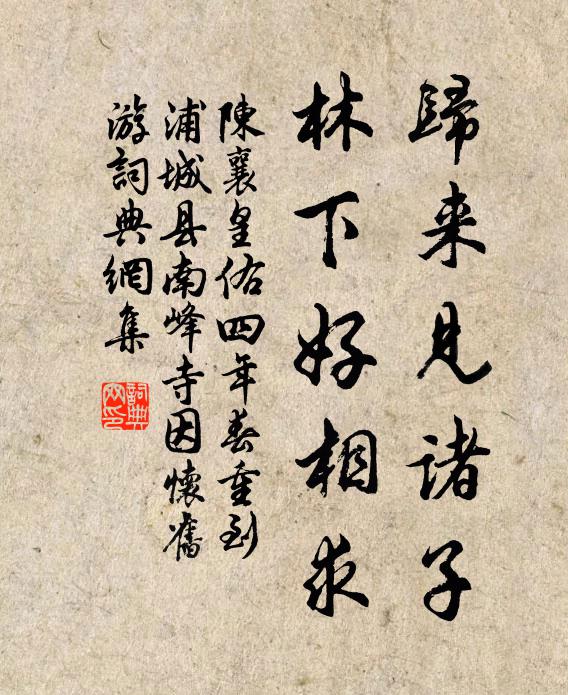 歸来見諸子
林下好相求
陳襄皇佑四年春重到
浦城县南峰寺因懷舊
游詞典網集
詞典网印